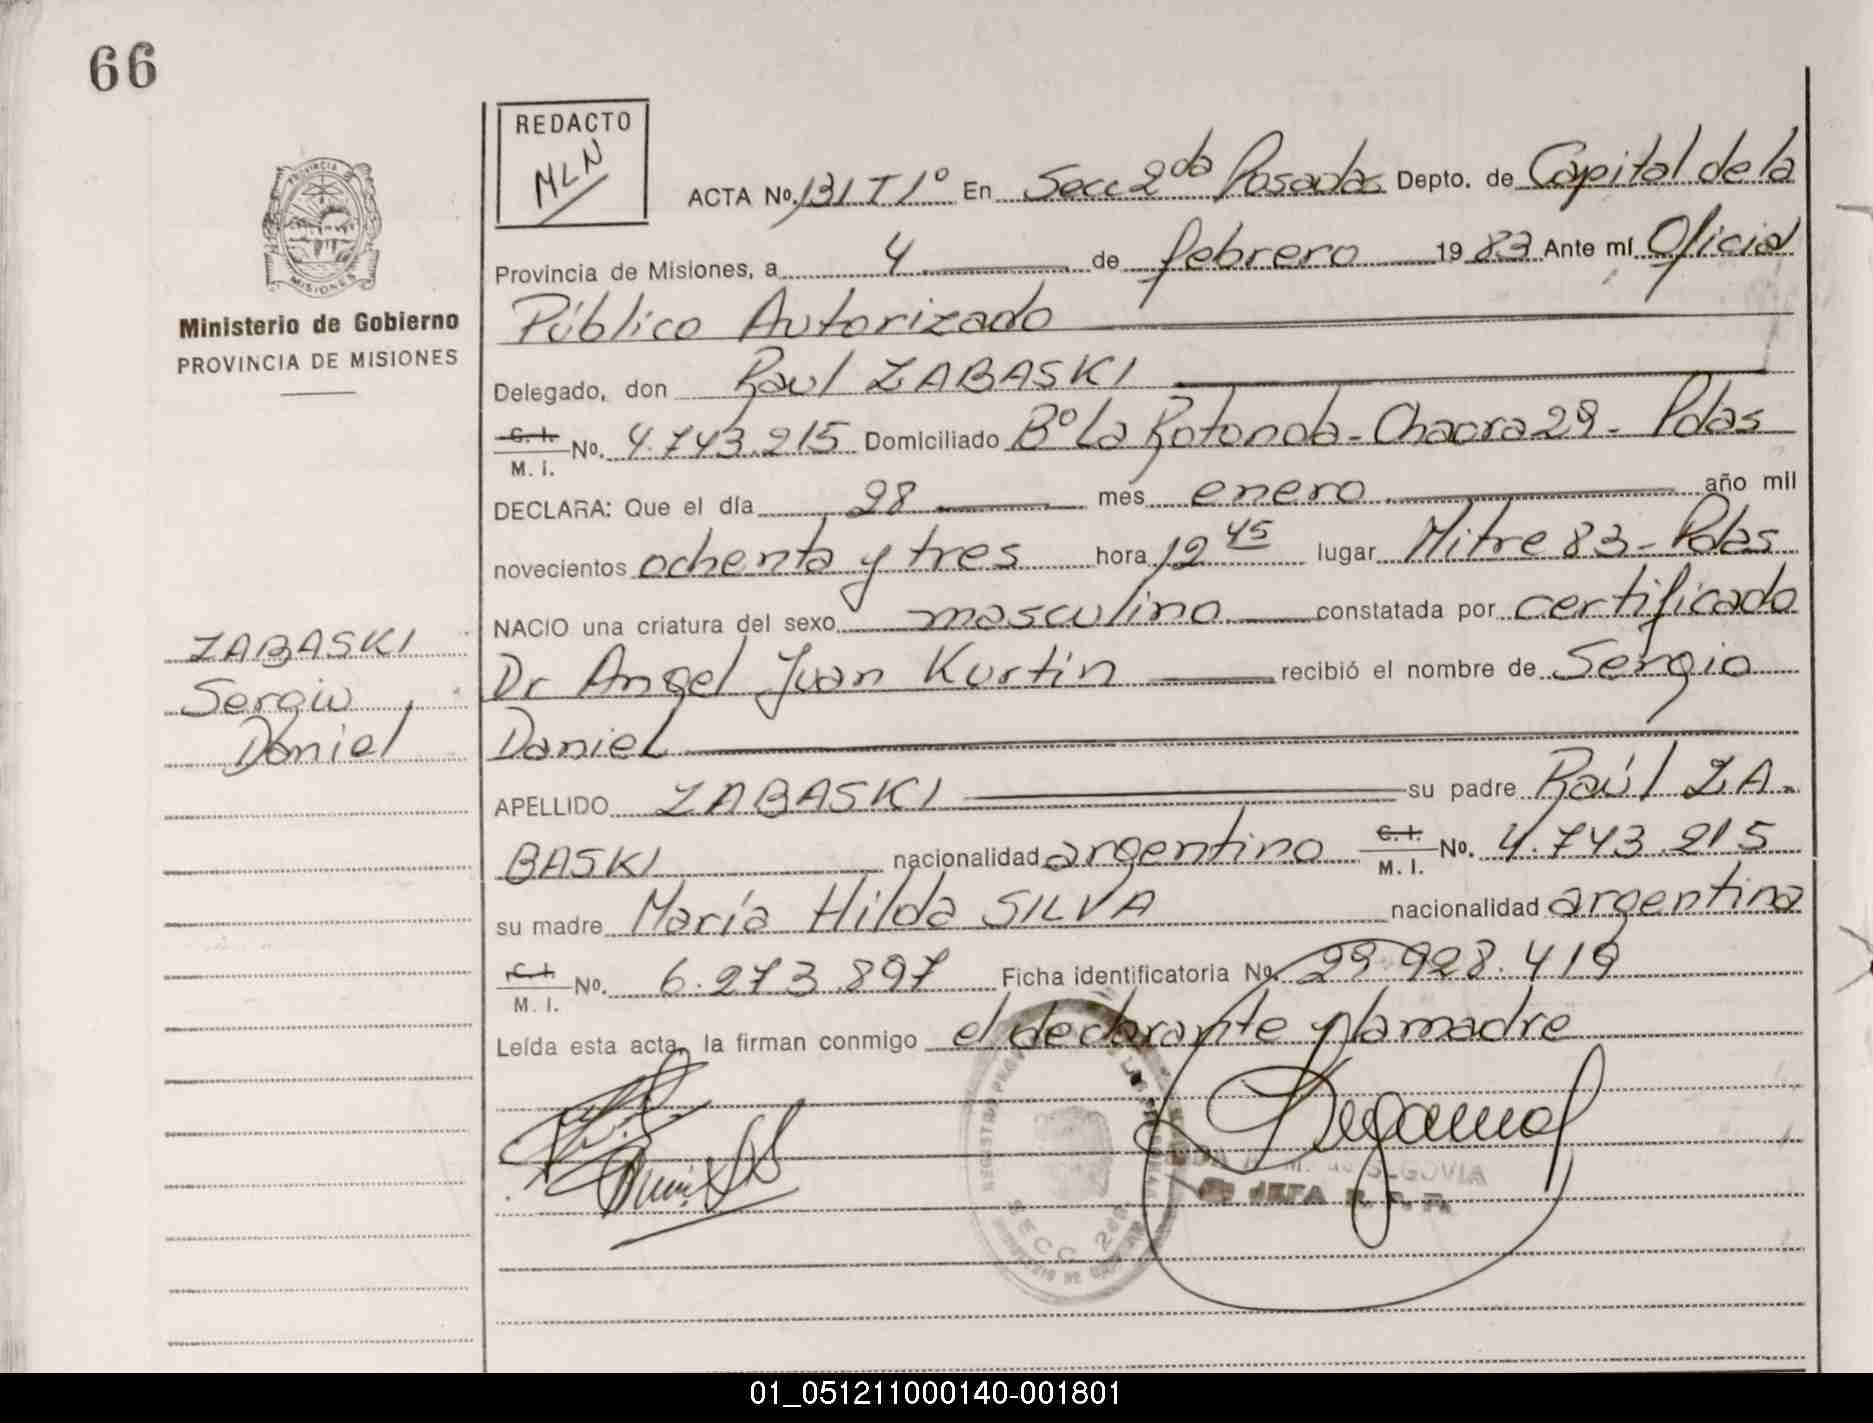 66
REDACTO
MLN
ACTA No. 131 T 1º En Secc 2da Posadas Depto. de Capital de la
Provincia de Misiones, a 4 de febrero 19 83 Ante mí Oficial
Público Autorizado
Ministerio de Gobierno
PROVINCIA DE MISIONES
Delegado, don Raul ZABASKI
C. I. No. 4.743.215 Domiciliado Bº La Rotonda - Chacra 29 - Pdas
M. I.
DECLARA: Que el día 28 mes enero año mil
novecientos ochenta y tres hora 12 45 lugar Mitre 83 - Pdas
NACIO una criatura del sexo masculino constatada por certificado
Dr Angel Juan Kurtin recibió el nombre de Sergio
Daniel
ZABASKI
Sergio
Daniel
APELLIDO ZABASKI su padre Raúl ZA-
BASKI nacionalidad argentino C. I. No. 4.743.215
M. I.
su madre María Hilda SILVA nacionalidad argentina
C. I. No. 6.273.897 Ficha identificatoria No. 29.928.419
M. I.
Leída esta acta, la firman conmigo el declarante y la madre
SECC 2da
SEGOVIA
JEFA R. P. P.
01_051211000140-001801